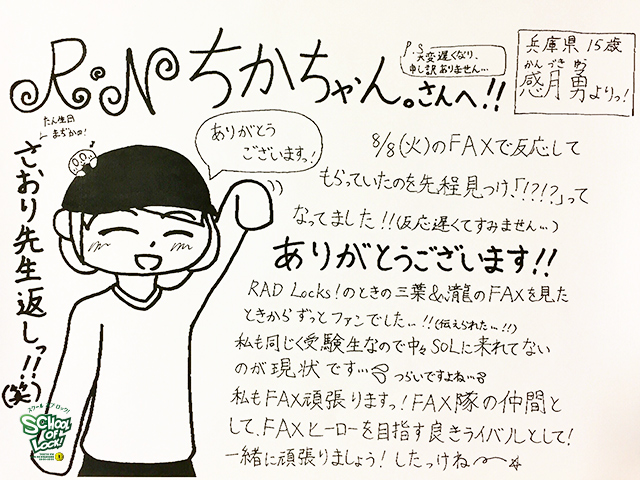 R*Nちかちゃん。さんへ!!
P.S 大変遅くなり、
申し訳ありません…
兵庫県 15歳
かん づき ゆう
感月勇よりっ!
たん生日
まぢかの!
ありがとう
ございますっ!
さおり先生返しっ!!(笑)
8/8(火)のFAXで反応して
もらっていたのを先程見つけ、「!?!?」って
なってました!!(反応遅くてすみません…)
ありがとうございます!!
RAD Locks!のときの三葉&瀧のFAXを見た
ときからずっとファンでした…!!(伝えられた…!!)
私も同じく受験生なので中々SOLに来れてない
のが現状です…つらいですよね…
私もFAX頑張りますっ!FAX隊の仲間と
して、FAXヒーローを目指す良きライバルとして!
一緒に頑張りましょう!したっけね〜☆
スクールオブロック!
SCHOOL
OF
LOCK!